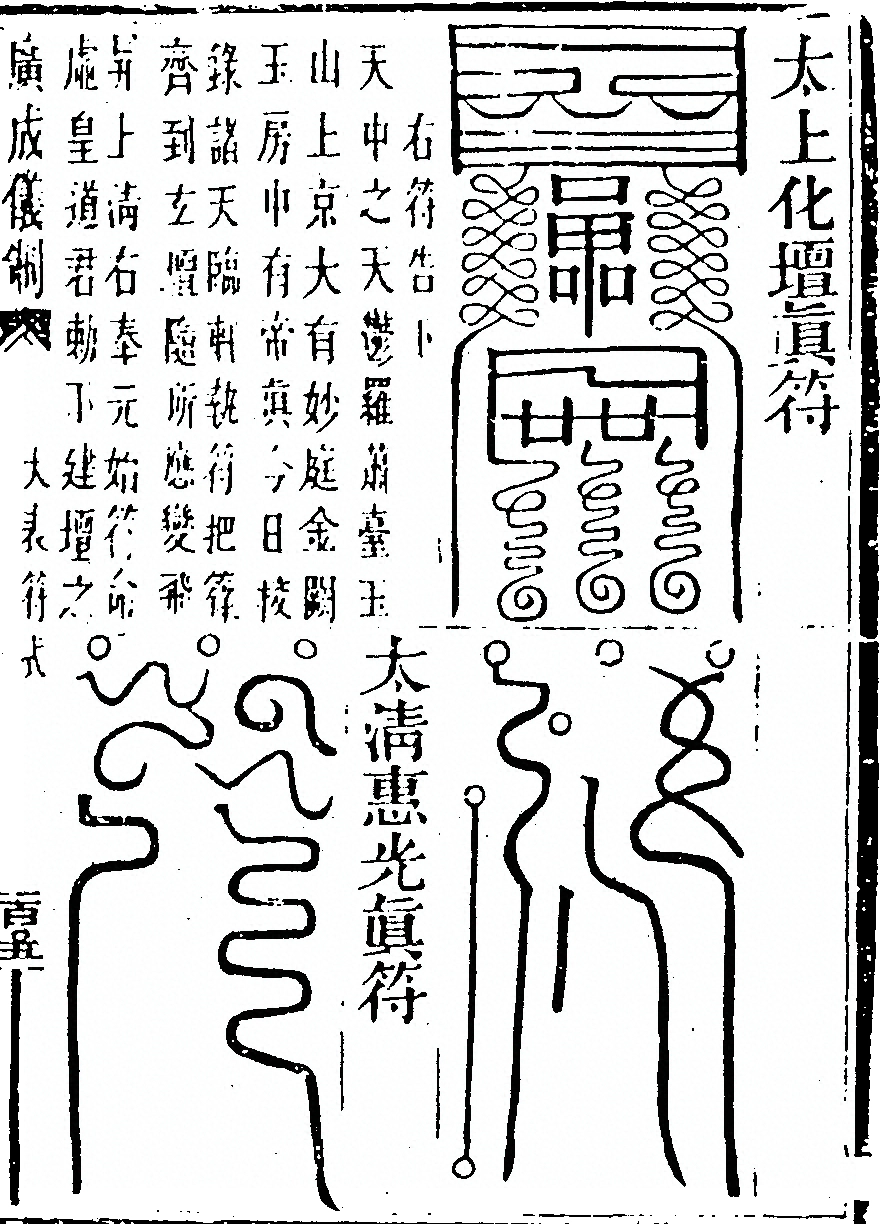 太上化壇眞符
右符告下
天中之天鬱羅蕭臺玉
山上京大有妙庭金闕
玉房中有帝眞今日挍
錄諸天臨軒執符把籙
齊到玄壇隨所應變飛
昇上淸右奉元始符命
虛皇道君勅下建壇之
太淸惠光眞符
廣成儀制
大表符式
百五